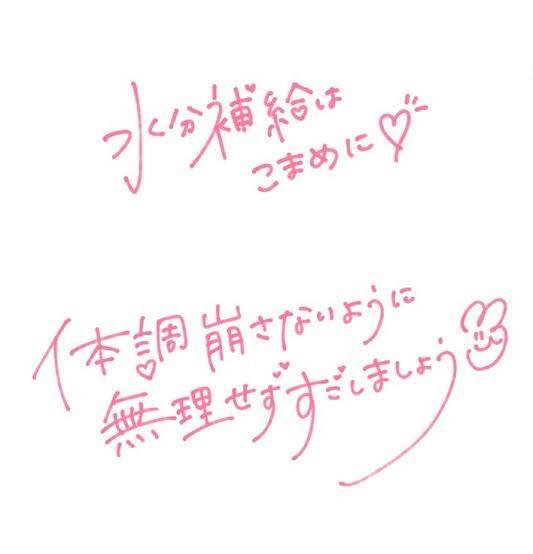 水分補給は
こまめに♡
体調崩さないように
無理せずすごしましょう